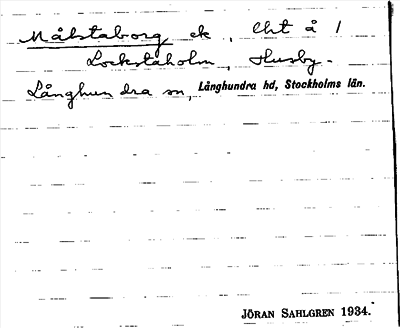 Målstaborg ek, Eht å 1
Lockstaholm, Husby-
Långhundra sn, Långhundra hd, Stockholms län.
JÖRAN SAHLGREN 1934.